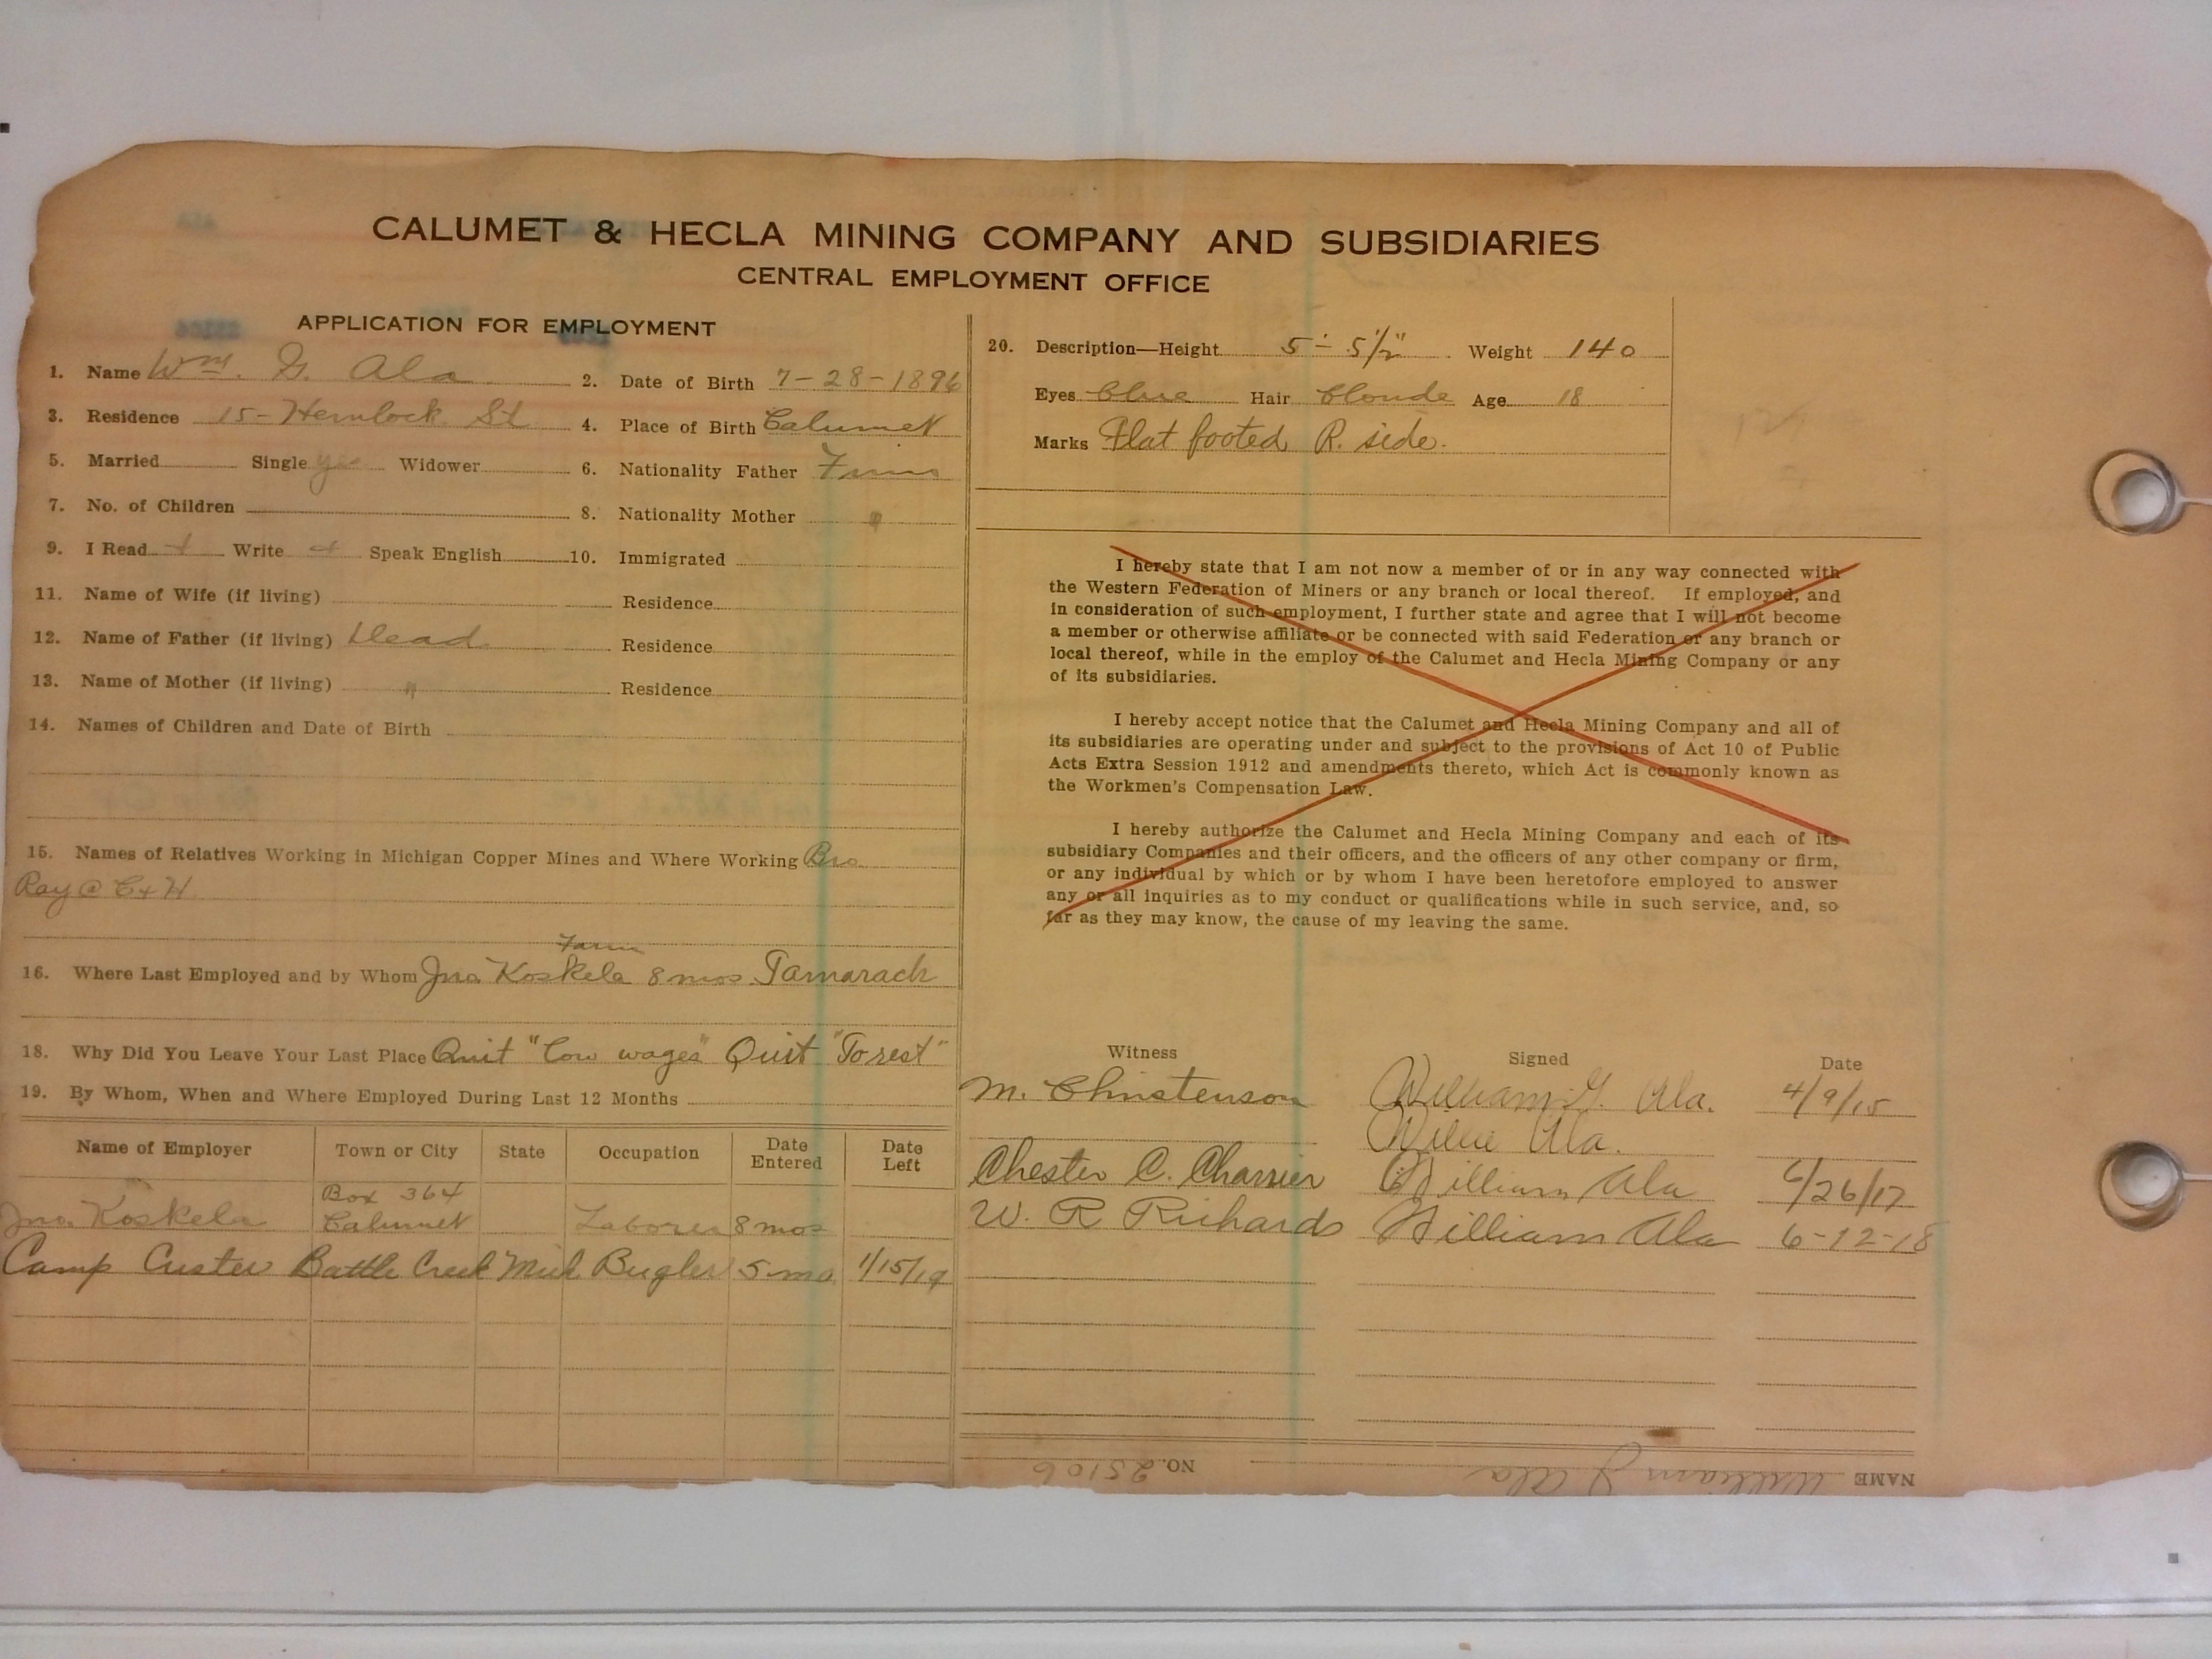 CALUMET & HECLA MINING COMPANY AND SUBSIDIARIES
CENTRAL EMPLOYMENT OFFICE
APPLICATION FOR EMPLOYMENT
1. Name Wm. G. Ala 2. Date of Birth 7-28-1896
3. Residence 15- Hemlock St 4. Place of Birth Calumet
5. Married Single yes Widower 6. Nationality Father Finns
7. No. of Children 8. Nationality Mother "
9. I Read + Write + Speak English 10. Immigrated
11. Name of Wife (if living) Residence
12. Name of Father (if living) Dead Residence
13. Name of Mother (if living) " Residence
14. Names of Children and Date of Birth
15. Names of Relatives Working in Michigan Copper Mines and Where Working Bro
Ray @ C + H
Farm
16. Where Last Employed and by Whom Jno. Koskela 8 mos Tamarack
18. Why Did You Leave Your Last Place Quit "Low wages" Quit "To rest"
19. By Whom, When and Where Employed During Last 12 Months
Name of Employer Town or City State Occupation Date Entered Date Left
Box 364
Jno. Koskela Calumet Laborer 8 mos
Camp Custer Battle Creek Mich Bugler 5 mo 1/15/19
20. Description—Height 5'- 5 1/2" Weight 140
Eyes Blue Hair Blonde Age 18
Marks Flat footed R. side.
I hereby state that I am not now a member of or in any way connected with
the Western Federation of Miners or any branch or local thereof. If employed, and
in consideration of such employment, I further state and agree that I will not become
a member or otherwise affiliate or be connected with said Federation or any branch or
local thereof, while in the employ of the Calumet and Hecla Mining Company or any
of its subsidiaries.
I hereby accept notice that the Calumet and Hecla Mining Company and all of
its subsidiaries are operating under and subject to the provisions of Act 10 of Public
Acts Extra Session 1912 and amendments thereto, which Act is commonly known as
the Workmen's Compensation Law.
I hereby authorize the Calumet and Hecla Mining Company and each of its
subsidiary Companies and their officers, and the officers of any other company or firm,
or any individual by which or by whom I have been heretofore employed to answer
any or all inquiries as to my conduct or qualifications while in such service, and, so
far as they may know, the cause of my leaving the same.
Witness Signed Date
M. Christenson William G. Ala. 4/9/15
Willie Ala.
Chester C. Charrier William Ala 6/26/17
W. R Richards William Ala 6-12-18
NAME William G Ala NO. 25106